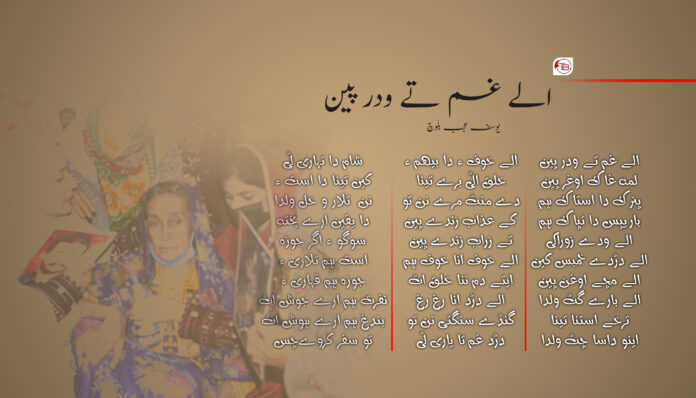 الے غم تے ودر پین
یوسف عجب بلوچ
الے غم تے ودر پین
لمہ غاک اوغر پین
پترک دا استاک ہم
دا نیاک ہم
الے ودے زوراکی
الے دژدے غمس کین
الے مچے اوغن پین
الے بارے گٹ ولدا
ترخے استنا تینا
اینو داسا چٹ ولدا
الے خوف ء دا بیھم ء
خلق الی برے تینا
دے متت مرے نن تو
کے عذاب زندے پین
تے زراب زندے پین
الے خوف انا خوف ہم
ایتے دم ننا خلق ات
الے دژد انا رغ رغ
گندے سنگتی نن تو
دژد غم تا یاری ٹی
شام دا تہاری ٹی
کین تینا دا است ء
نن تلار و خل ولدا
دا یقین ارے پختہ
سوگو ء اگر جوزہ
است ہم تلاری ء
جوزہ ہم قہاری ء
نفرت ہم ارے جوش ات
بندغ ہم ارے ہوش ات
تو سفر